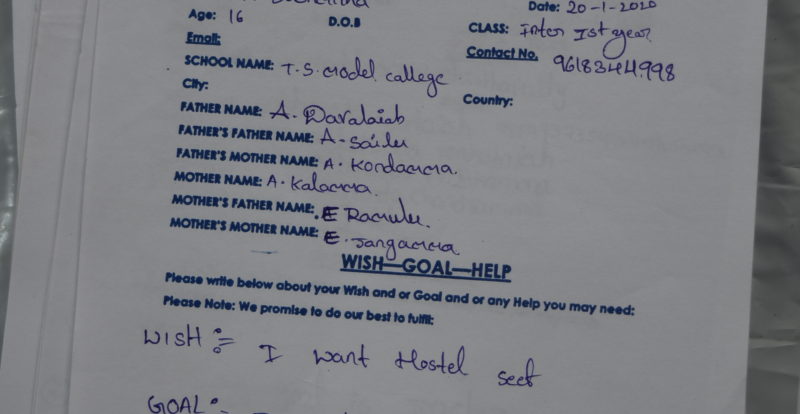 Date: 20-1-2020
Age: 16 D.O.B CLASS: Inter Ist year
Email: Contact No. 9618344998
SCHOOL NAME: T.S. model callege
City: Country:
FATHER NAME: A.
FATHER'S FATHER NAME: A-Sailu
FATHER'S MOTHER NAME: A. Kondamma.
MOTHER NAME: A. Kalamma.
MOTHER'S FATHER NAME: E Ramulu.
MOTHER'S MOTHER NAME: E. Jangamma
WISH—GOAL—HELP
Please write below about your Wish and or Goal and or any Help you may need:
Please Note: We promise to do our best to fulfil:
WISH := I want Hostel seet
GOAL:-